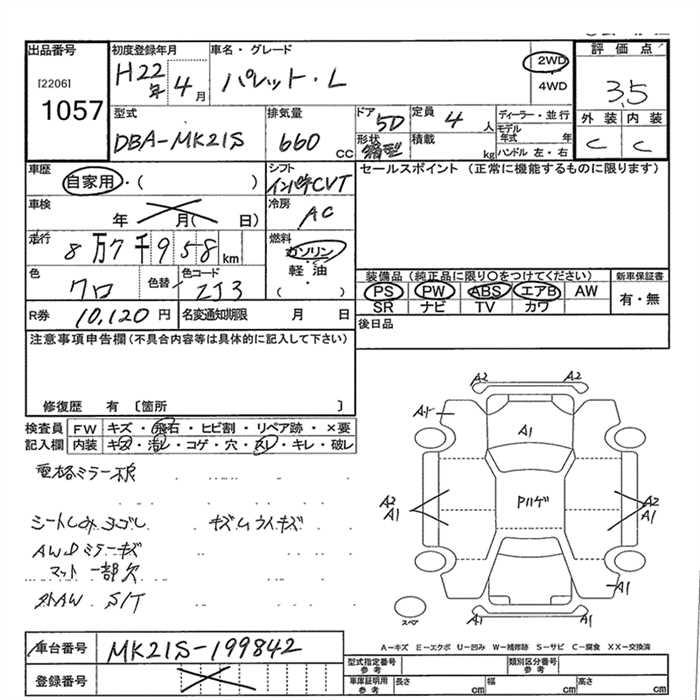 出品番号
[2206]
1057
初度登録年月
H22年 4月
車名・グレード
パレット・L
2WD
4WD
評価点
3.5
外装 内装
C C
型式
DBA-MK21S
排気量
660 CC
ドア
5D
形状
箱型
定員
4人
積載
kg
ディーラー・並行
モデル年式 年
ハンドル 左・右
車歴
自家用・( )
シフト
インパネCVT
セールスポイント (正常に機能するものに限ります)
車検
年 月( 日)
冷房
AC
走行
8万7千958km
燃料
ガソリン・
軽油
( )
色
クロ
色替
色コード
ZJ3
装備品 (純正品に限り〇をつけてください)
新車保証書
PS PW ABS エアB AW
有・無
SR ナビ TV カワ
R券 10,120円
名変通知期限 月 日
後日品
注意事項申告欄(不具合内容等は具体的に記入して下さい)
修復歴 有 〔箇所 〕
検査員
記入欄
FW キズ・飛石・ヒビ割・リペア跡・×要
内装 キズ・汚レ・コゲ・穴・スレ・キレ・破レ
電格ミラー
シートしみ ヨゴレ
キズ
AWD ミラーキズ
マット一部欠
外AW S/T
A2 A2
A1
A1
Pハゲ
A2
A1
A2
A1
A1
A2 A2
スペア
A-キズ E-エクボ U-凹み W-補修跡 S-サビ C-腐食 XX-交換済
車台番号 MK21S-199842
登録番号
型式指定番号
参考
類別区分番号
参考
車庫証明用
参考
長さ cm
幅 cm
高さ cm